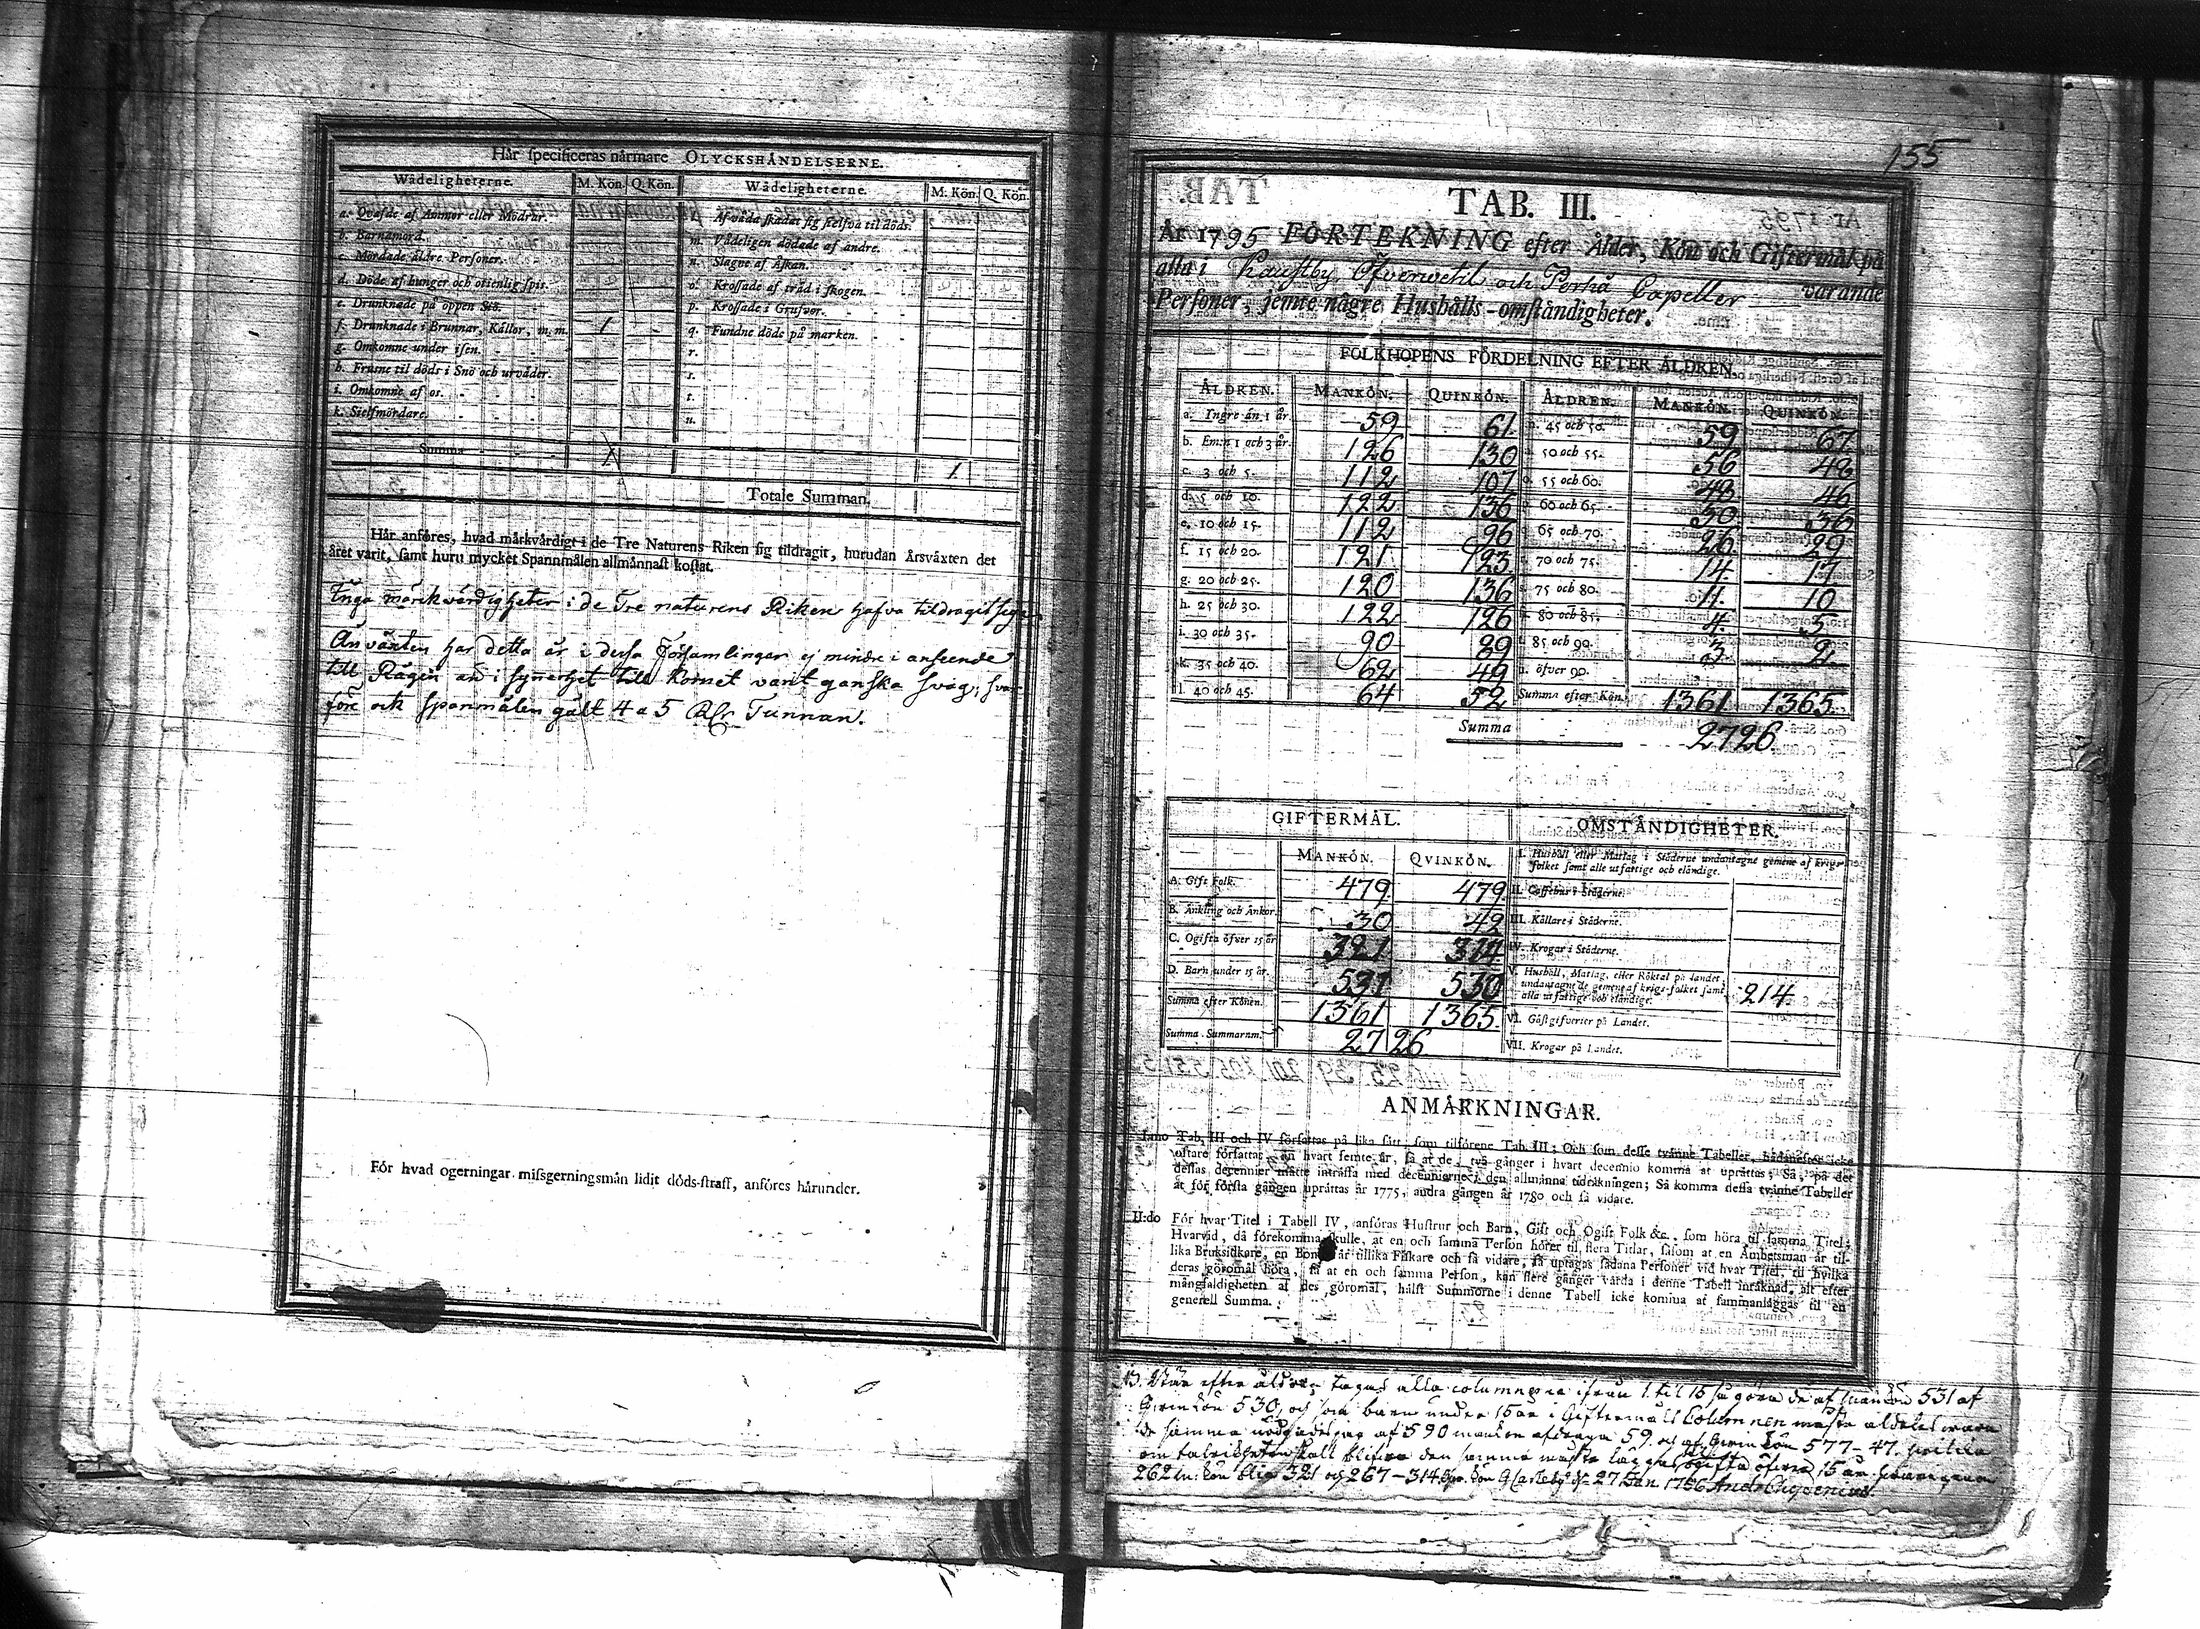 Hår specificeras nårmare OLYCKSHÅNDELSERNE.
Wådeligheterne. M. Kön. Q. Kön. Wådeligheterne. M. Kön. Q. Kön.
a. Qvafde af Ammor eller Mödrar. Af våda skadat sig sielfva til döds.
b. Barnamord. m. Vådeligen dödade af andre.
c. Mördade äldre Personer. n. Slagne af Åskan.
d. Döde af hunger och otienlig spis. o. Krossade af tråd i skogen.
e. Drunknade på öppen Siö. p. Krossade i Grufvor.
f. Drunknade i Brunnar, Kållor, m.m. 1 q. Fundne döde på marken.
g. Omkomne under isen. r.
h. Frusne til döds i Snö och urvåder. s.
i. Omkomne af os. t.
k. Sielfmördare. u.
Summa 1
Totale Summan. 1
Hår anföres, hvad mårkvårdigt i de Tre Naturens Riken sig tildragit, hurudan Årsvåxten det
året varit, samt huru mycket Spannmålen allmånnast kostat.
Inga märkvärdigheter i de Tre naturens Riken hafva tildragit sig.
Årsväxten har detta år i dessa Församlingar ej mindre i anseende
till Rågen än i synnerhet till Kornet varit ganska svag; hvar-
före ock spanmålen gält 4 a 5 Rdr Tunnan.
För hvad ogerningar missgerningsmån lidit döds-straff, anföres hårunder.
155
TAB. III.
År 1795 FÖRTEKNING efter Ålder, Kön och Giftermål på
alla i Kaustby Öfvervetil och Perho Capeller varande
Personer, jemte någre Hushålls-omståndigheter.
FOLKHOPENS FÖRDELNING EFTER ÅLDREN.
ÅLDREN. MANKÖN. QUINKÖN. ÅLDREN. MANKÖN. QUINKÖN.
a. Yngre ån 1 år. 59 61 45 och 50. 59 67
b. Em:n 1 och 3 år. 126 130 50 och 55. 56 48
c. 3 och 5. 112 107 55 och 60. 48 46
d. 5 och 10. 122 136 60 och 65. 30 36
e. 10 och 15. 112 96 65 och 70. 26 29
f. 15 och 20. 121 123 70 och 75. 14 17
g. 20 och 25. 120 136 75 och 80. 11 10
h. 25 och 30. 122 126 80 och 85. 4 3
i. 30 och 35. 90 89 85 och 90. 3 2
k. 35 och 40. 62 49 u. öfver 90.
l. 40 och 45. 64 52 Summa efter Kön. 1361 1365
Summa 2726
GIFTERMÅL. OMSTÅNDIGHETER.
MANKÖN. QVINKÖN. I. Hushåll eller Matlag i Ståderne undantagne gemene af krigs-
folket samt alle utfattige och elåndige.
A. Gift Folk. 479 479 II. Caffehus i Ståderne.
B. Ånkling och Ånkor 30 42 III. Kållare i Ståderne.
C. Ogifta öfver 15 år 321 314 IV. Krogar i Ståderne.
D. Barn under 15 år. 531 530 V. Hushåll, Matlag, eller Röktal på landet
undantagne de gemene af krigs-folket samt
alla utfattige och elåndige. 214
Summa efter Könen. 1361 1365 VI. Gåstgifverier på Landet.
Summa Summarum. 2726 VII. Krogar på Landet.
ANMÅRKNINGAR.
I:mo Tab. III och IV författas på lika sått, som tilförene Tab. III; Och som desse tvånne Tabeller, hådanefter icke
oftare författas, ån hvart femte år, så at de två gånger i hvart decennio komma at upråttas; Så, på det
dessas decennier måtte intråffa med decennierne i den allmånna tidråkningen; Så komma dessa tvånne Tabeller
åt för första gången upråttas år 1775, andra gången år 1780 och så vidare.
II:do För hvar Titel i Tabell IV, anföras Hustrur och Barn, Gift och Ogift Folk &c. som höra til samma Titel;
Hvarvid, då förekomma skulle, at en och samma Person hörer til flera Titlar, såsom at en Åmbetsman år til-
lika Bruksidkare, en Bonde år tillika Fiskare och så vidare, så uptagas sådana Personer vid hvar Titel, til hvilka
deras göromål höra, så at en och samma Person, kan flere gånger varda i denne Tabell inråknad, alt efter
mångfaldigheten af des göromål, hålst Summorne i denne Tabell icke komma at sammanlåggas til en
generell Summa.
När efter åldren tagas alla columnerna ifrån 1 til 15 så göra de af mankön 531 af
Qvinkön 530, och som barn under 15 år i Giftermåls Columnen måste aldeles vara
de samma af 590 mankön afdragas 59 och af Qvinkön 577-47.
skall blifva den samma måste läggas ogifta öfver 15 år
262 m: kön blir 321 och 267-314 27 Jan. 1796